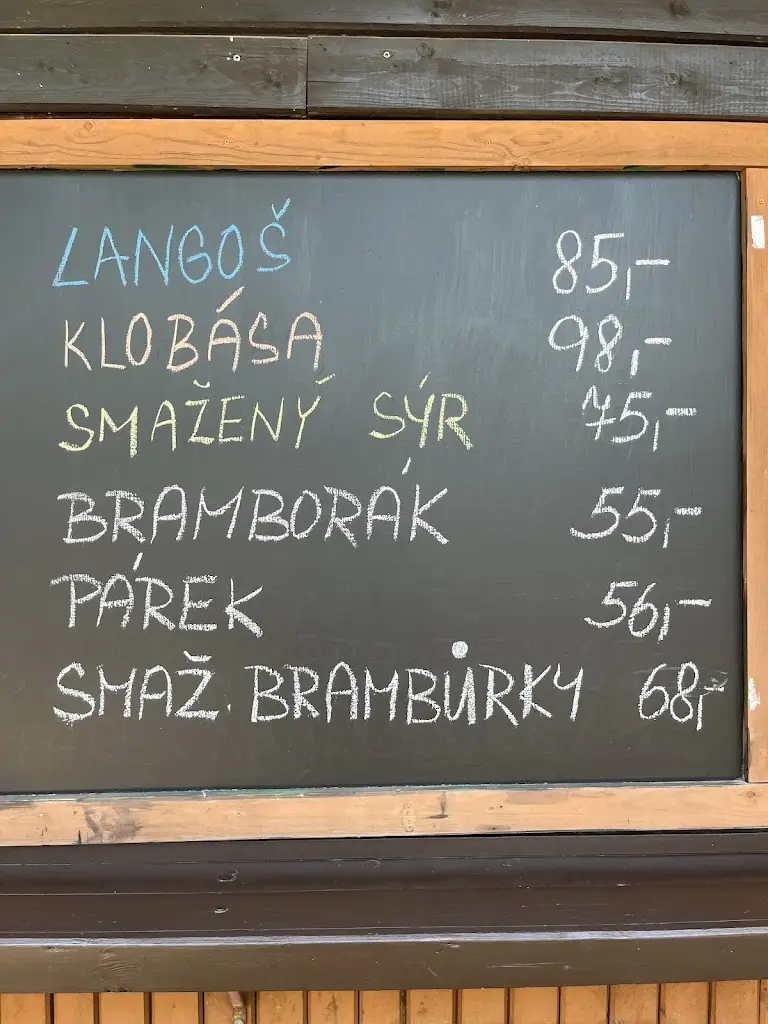 LANGOŠ 85,-
KLOBÁSA 98,-
SMAŽENÝ SÝR 75,-
BRAMBORÁK 55,-
PÁREK 56,-
SMAŽ. BRAMBŮRKY 68,-